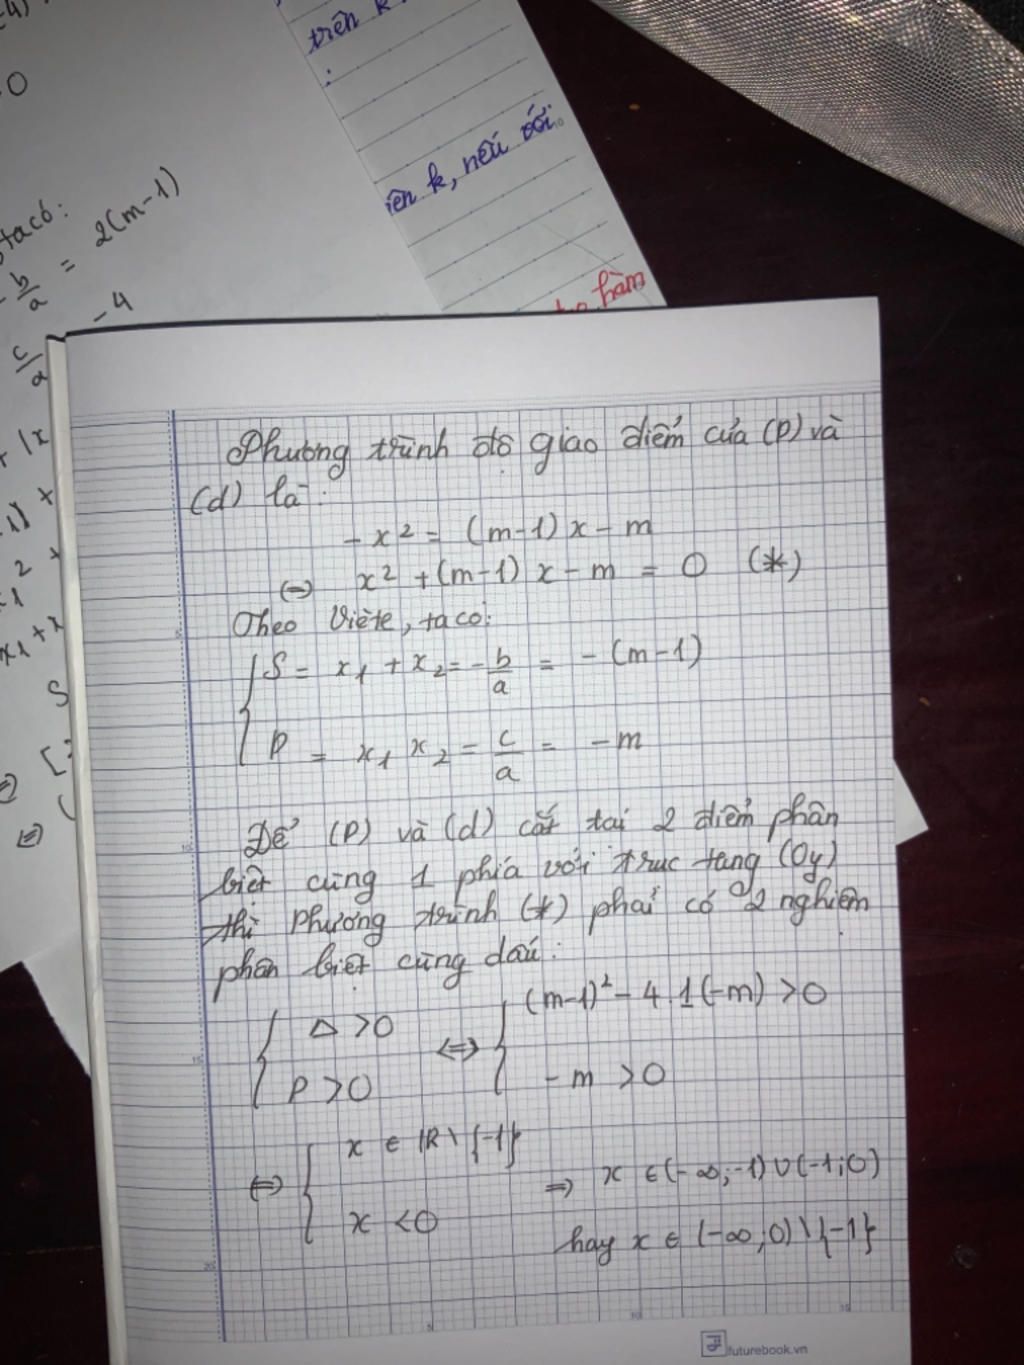 trên k
:
iên k, nếu với
hàm
-4)
0
ta có:
- b/a = 2(m-1)
c/a
-4
+ |x
Phương trình độ giao điểm của (P) và
(d) là:
- x² = (m-1) x - m
(=) x² + (m-1) x - m = 0 (*)
Theo Viète, ta có:
{ S = x₁ + x₂ = - b/a = - (m-1)
P = x₁ x₂ = c/a = - m
Để (P) và (d) cắt tại 2 điểm phân
biệt cùng 1 phía với trục tung (Oy)
thì phương trình (*) phải có 2 nghiệm
phân biệt cùng dấu:
{ Δ > 0 <=> { (m-1)² - 4.1(-m) > 0
P > 0 - m > 0
<=> { x ∈ ℝ \ {-1} => x ∈ (-∞;-1) ∪ (-1;0)
x < 0 hay x ∈ (-∞;0) \ {-1}
futurebook.vn